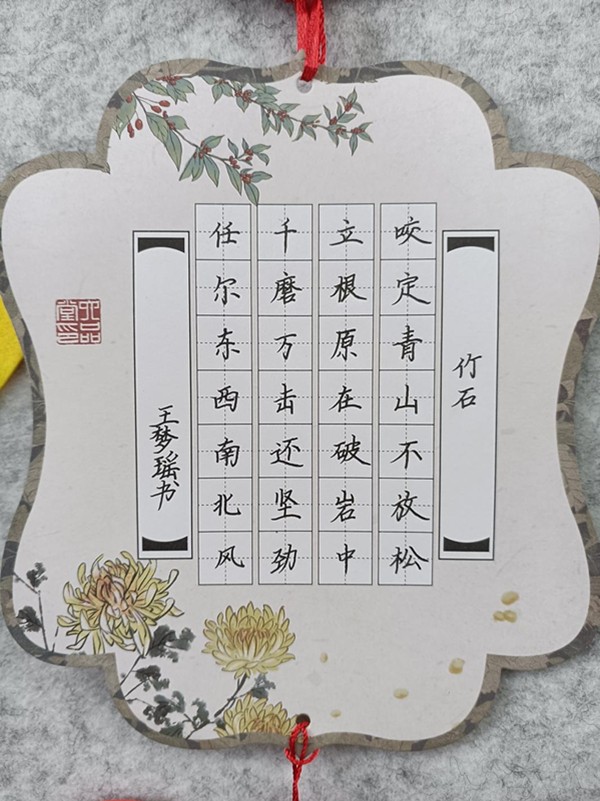 竹石
咬定青山不放松
立根原在破岩中
千磨万击还坚劲
任尔东西南北风
王梦瑶书